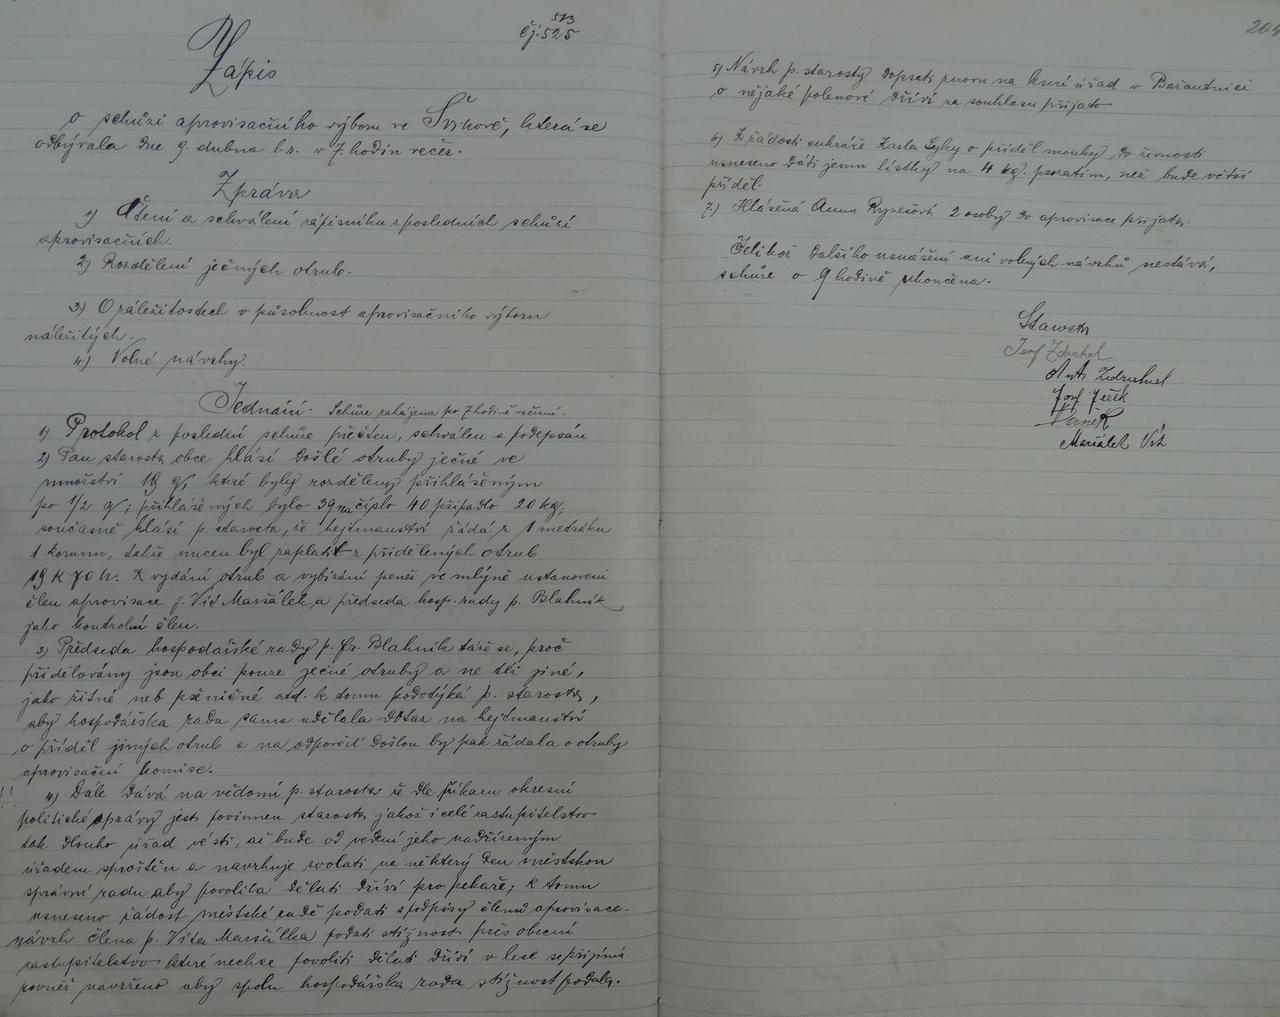 513
čj. 525
Zápis
o schůzi aprovisačního výboru ve Švihově, která se
odbývala dne 9. dubna l. r. v 7. hodin večer.
Zpráva
1) Čtení a schválení zápisníku z posledních schůzí
aprovisačních.
2) Rozdělení ječných otrub.
3) O záležitostech v působnost aprovisačního výboru
náležitých.
4) Volné návrhy.
Jednání. Schůze zahájena po 7 hodině večerní.
1) Protokol z poslední schůze přečten, schválen a podepsán
2) Pan starosta obce hlásí došlé otruby ječné ve
množství 19 q, které byly rozděleny přihlášeným
po 1/2 q; přihlášených bylo 39 na číslo 40 připadlo 20 kg,
současně hlásí p. starosta, že hejtmanství žádá z 1 metráku
1 korunu, takže nucen byl zaplatit z přidělených otrub
19 K 70 h. K vydání otrub a vybírání peněz ve mlýně ustanoveni
člen aprovisace p. Vít Maršálek a předseda hosp. rady p. Blahník
jako kontrolní člen.
3) Předseda hospodářské rady p. Fr. Blahník táže se, proč
přidělovány jsou obci pouze ječné otruby a ne též jiné,
jako žitné neb pšeničné atd. k tomu podotýká p. starosta,
aby hospodářská rada sama udělala dotaz na hejtmanství
o příděl jiných otrub a na odpověď došlou by pak žádala o otruby
aprovisační komise.
!! 4) Dále dává na vědomí p. starosta že dle příkazu okresní
politické správy jest povinnen starosta jakož i celé zastupitelstvo
tak dlouho úřad vésti, až bude od vedení jeho nadřízeným
úřadem sproštěn a navrhuje svolati na některý den městskou
správní radu aby povolila dělati dříví pro pekaře; k tomu
usneseno žádost městské radě podati s podpisy členů aprovisace.
návrh člena p. Víta Maršálka podati stížnost přes obecní
zastupitelstvo které nechce povoliti dělati dříví v lese se přijímá
rovněž navrženo aby spolu hospodářská rada stížnost podala.
204
5) Návrh p. starosty dopsati znovu na lesní úřad v Bažantnici
o nějaké polenové dříví za souhlasu přijato
6) K žádosti cukráře Karla Sýky o příděl mouky do živnosti
usneseno dáti jemu lístky na 4 kg. prozatím, než bude větší
příděl.
7.) Hlášená Anna 2 osoby do aprovisace přijata.
Jelikož dalšího usnášení ani volných návrhů nestává,
schůze o 9 hodině ukončena.
Starosta
Josef Zdrahal
Ant. Zdrahal
Josef Ježek
Maršálek Vít